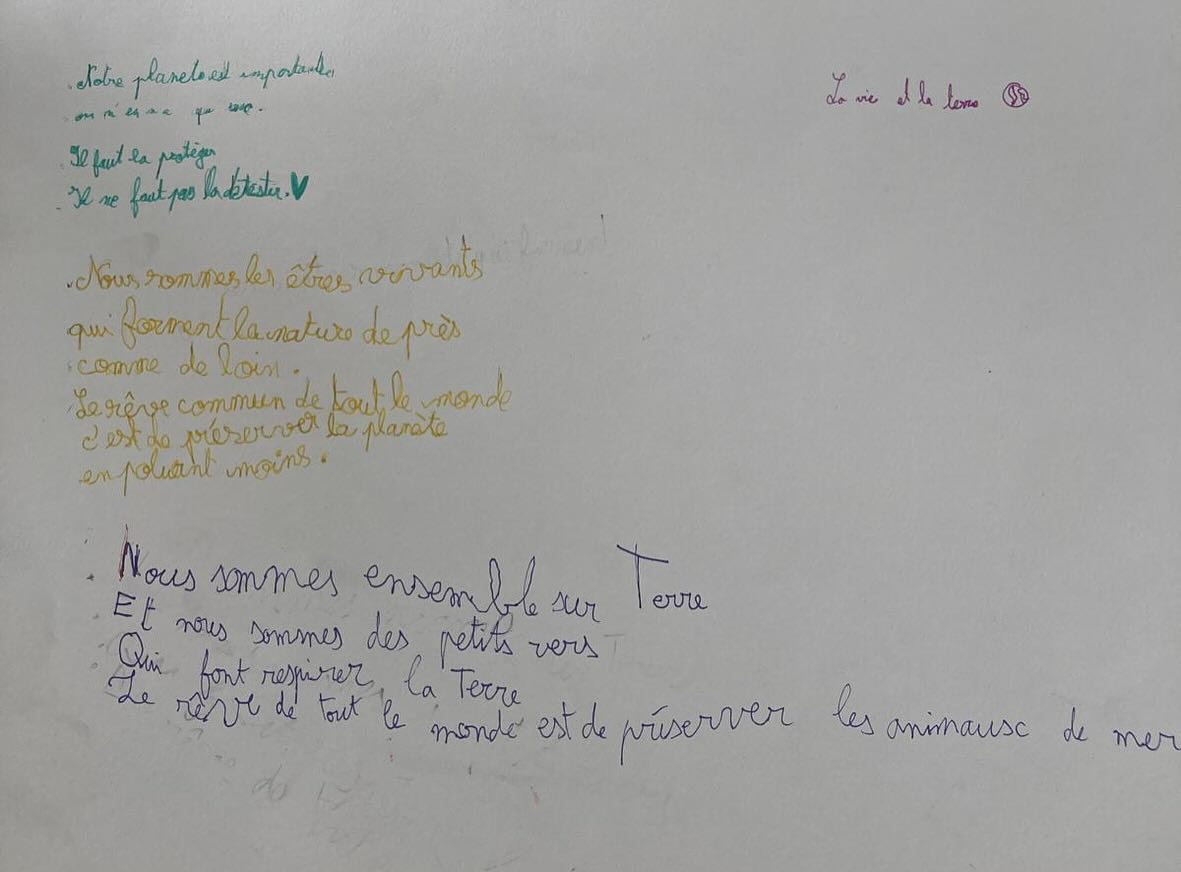 . Notre planete est importante,
on n'en a que
. Il faut la protéger
. Il ne faut pas la détester.
La vie et la terre
. Nous sommes les êtres vivants
qui forment la nature de près
comme de loin.
Le rêve commun de tout le monde
c'est de préserver la planète
en poluant moins.
. Nous sommes ensemble sur Terre
Et nous sommes des petits vers
Qui font respirer la Terre
Le rêve de tout le monde est de préserver les animausc de mer